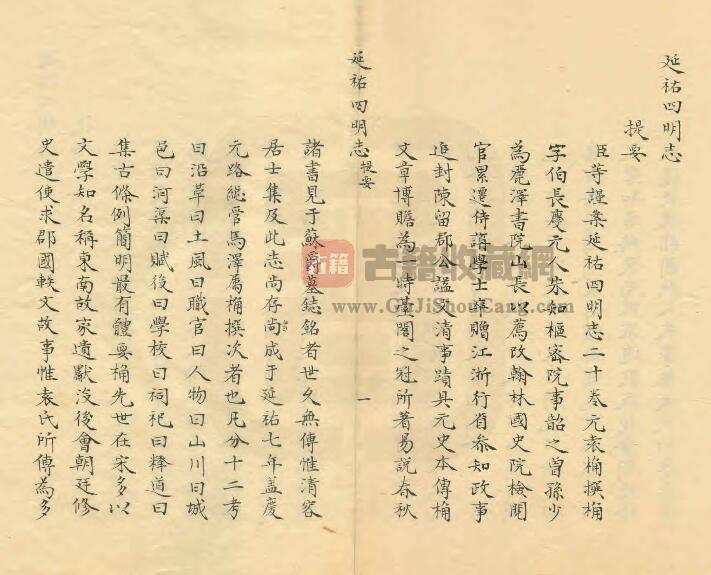 延祐四明志
提要
臣等謹案延祐四明志二十卷元袁桷撰桷
字伯長慶元人宋知樞密院事韶之曾孫少
為麗澤書院山長以薦改翰林國史院檢閱
官累遷侍講學士卒贈江浙行省參知政事
追封陳留郡公諡文清事蹟具元史本傳桷
文章博贍為一時臺閣之冠所著易說春秋
延祐四明志 提要
一
諸書見于蘇爵墓誌銘者世久無傳惟清容
居士集及此志尚存尚成于延祐七年盖慶
元路總管馬澤屬桷撰次者也凡分十二考
曰沿革曰土風曰職官曰人物曰山川曰城
邑曰河渠曰賦役曰學校曰祠祀曰釋道曰
集古條例簡明最有體要桷先世在宋多以
文學知名稱東南故家遺獻没後會朝廷修
史遣使求郡國軼文故事惟袁氏所傳為多
古籍
古籍收藏網
www.GuJiShouCang.com